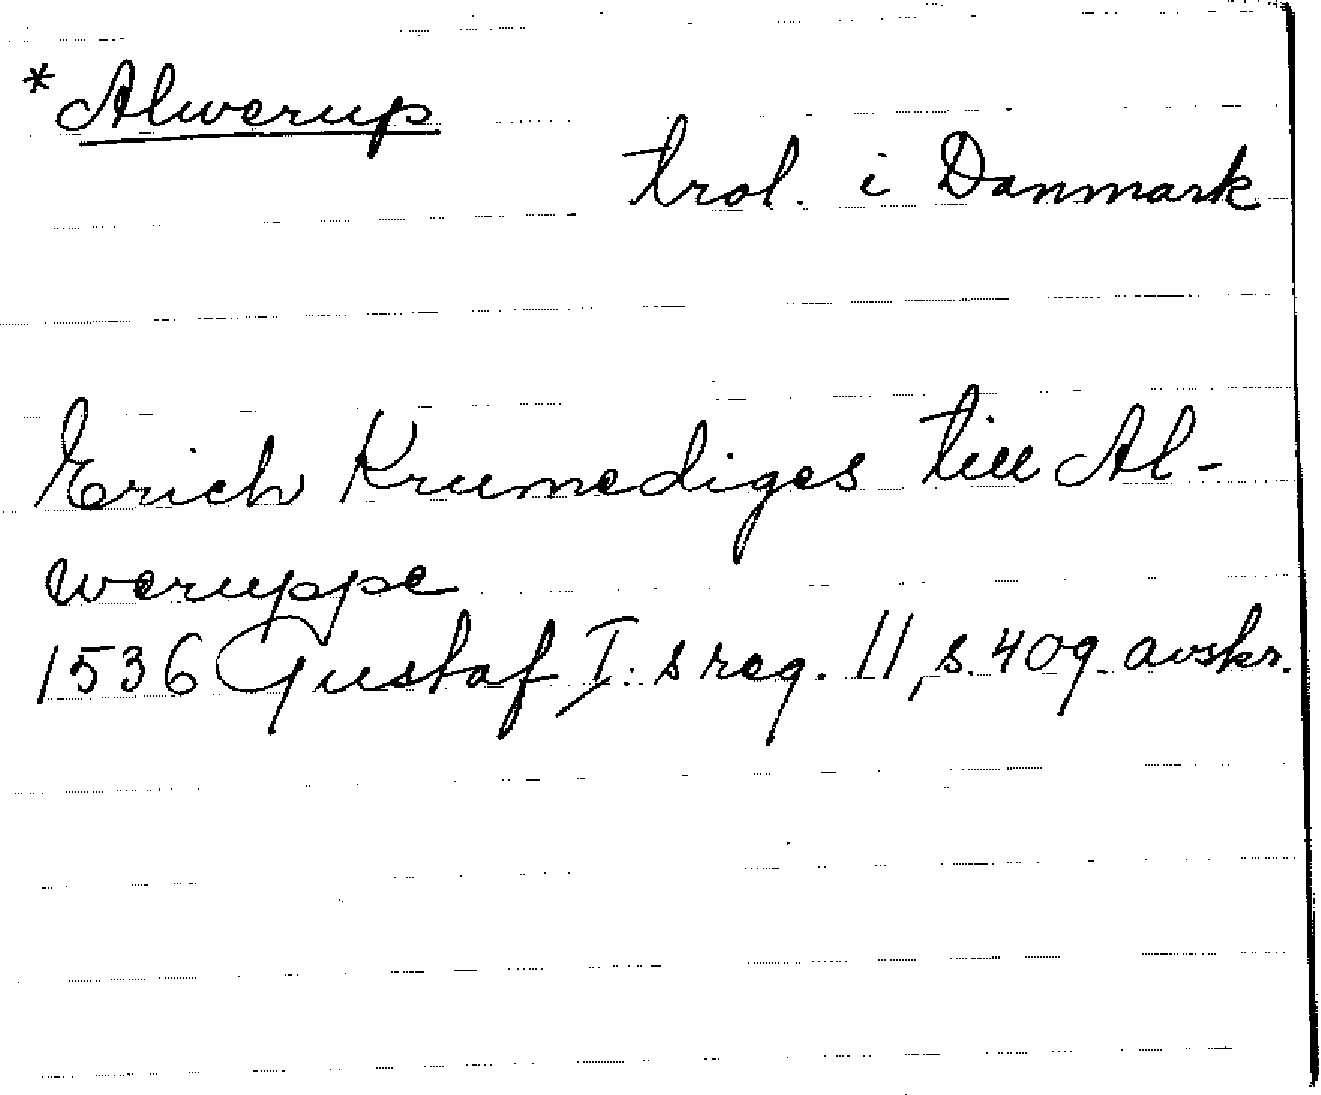 *Alwerup
trol. i Danmark
Erich Krumediges till Al-
weruppe
1536 Gustaf I:s reg. 11, s. 409 avskr.